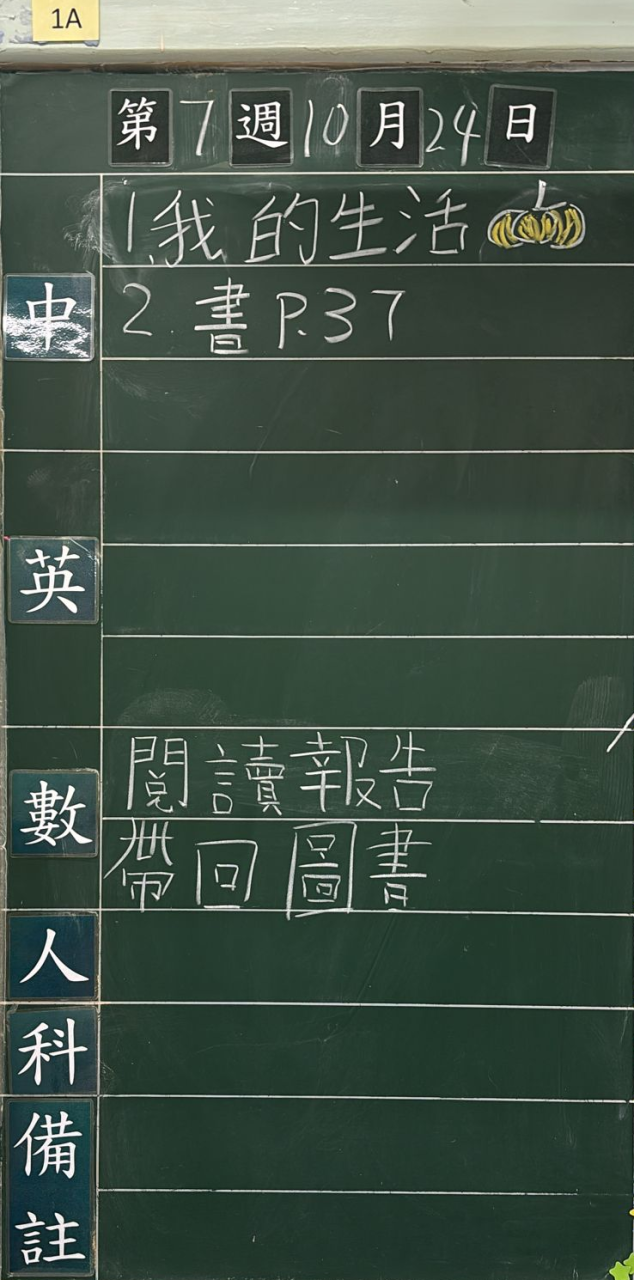 1A
第7週10月24日
1.我的生活
中
2.書P.37
英
閱讀報告
數
帶回圖書
人
科
備
註